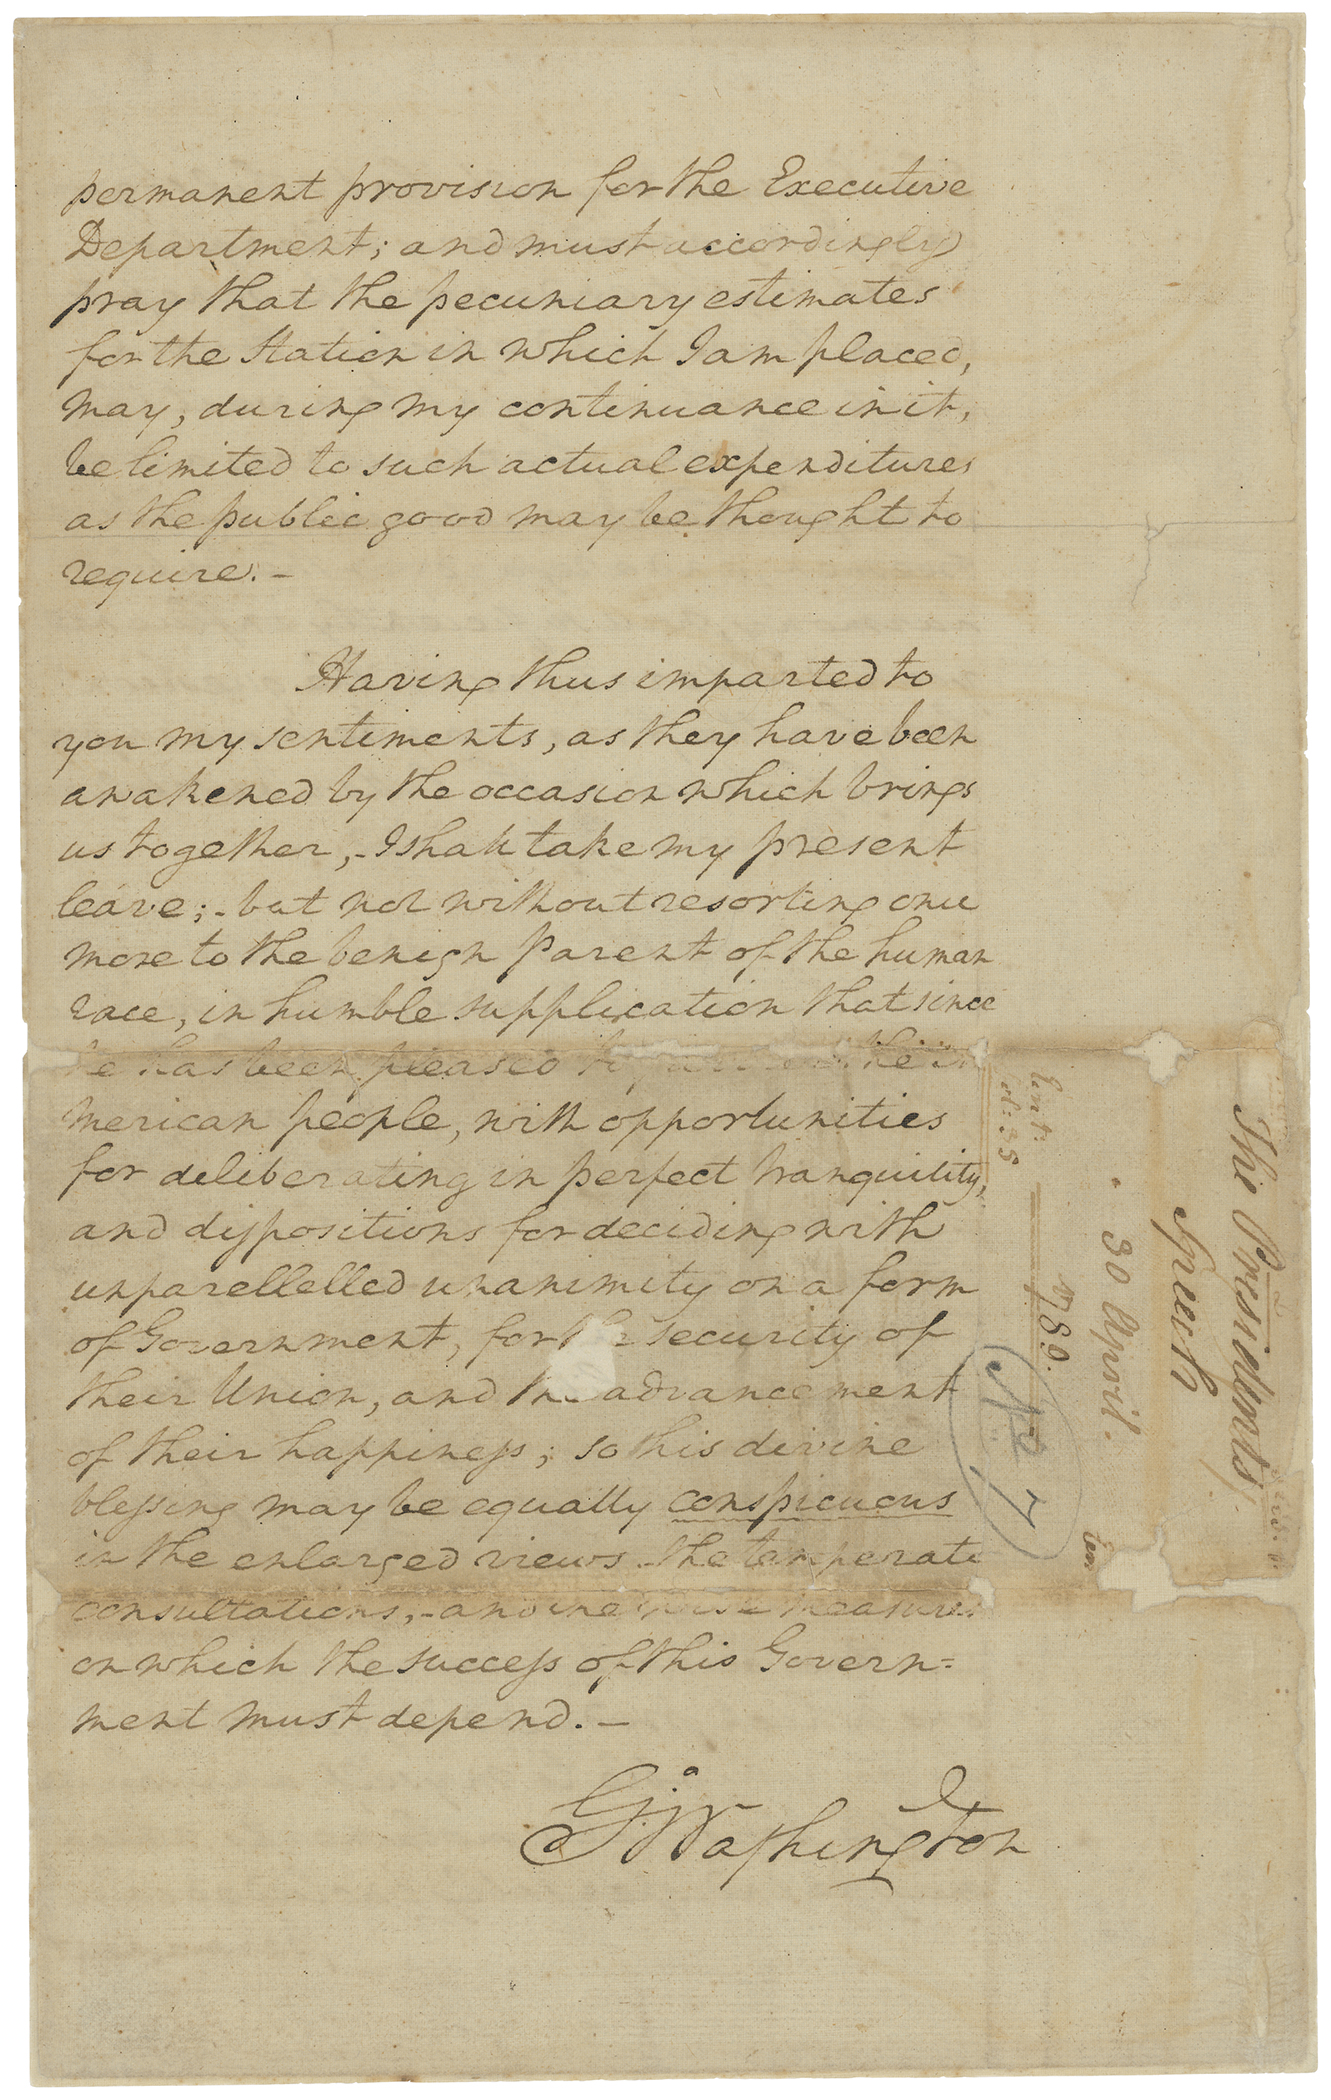 permanent provision for the Executive
Department; and must accordingly
pray that the pecuniary estimates
for the Station in which I am placed,
may, during my continuance in it,
be limited to such actual expenditures
as the public good may be thought to
require. –
Having thus imparted to
you my sentiments, as they have been
awakened by the occasion which brings
us together, – I shall take my present
leave; – but not without resorting once
more to the benign Parent of the human
race, in humble supplication that since
he has been pleased to the A
merican people, with opportunities
for deliberating in perfect tranquility,
and dispositions for deciding with
unparellelled unanimity on a form
of Government, for the security of
their Union, and the advancement
of their happiness; so his divine
blessing may be equally conspicuous
in the enlarged views – the temperate
consultations, – and the wise measures
on which the success of this Govern=
ment must depend. –
G:Washington
The Presidents
Speech
30 April.
1789.
Ent:
7